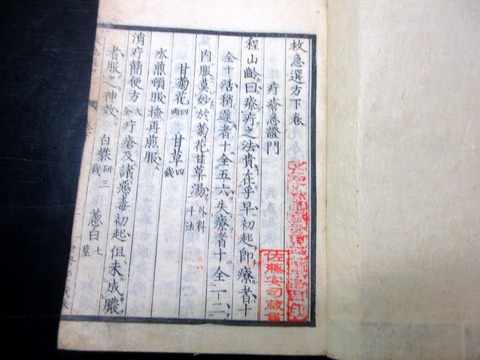 救急選方下卷
疔瘡急證門
程山齡曰療疔之法貴在乎早初起即療者十
全十活稍遲者十全五六失療者十全一二
內服莫妙於菊花甘草湯外科十法
甘菊花四兩 甘草四錢
水煎頓服楂再煎服
消疔簡便方大全 疔瘡及諸惡毒初起但未成膿
者服之神效 白礬研三錢 葱白七莖
佐藤安司藏書